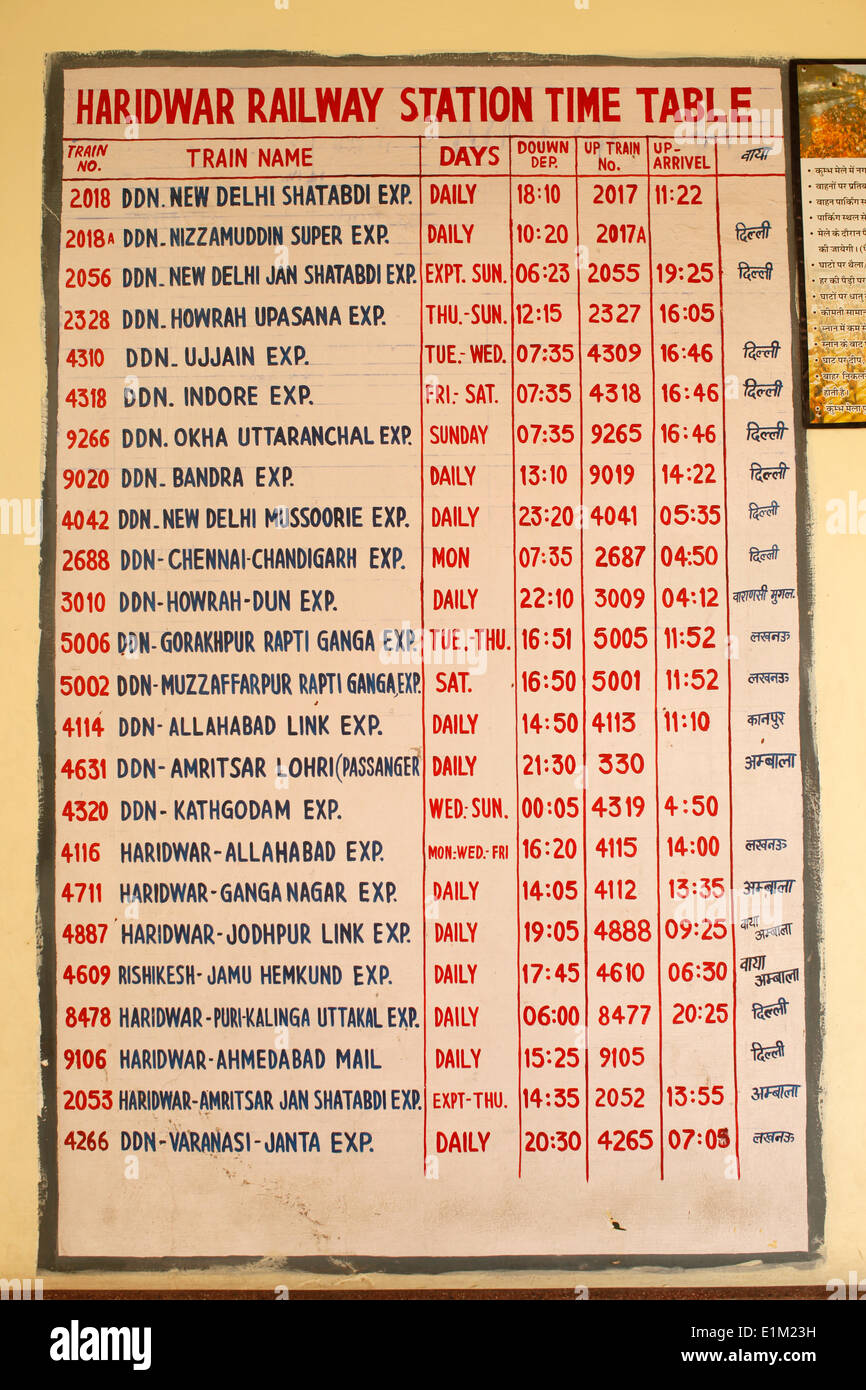 HARIDWAR RAILWAY STATION TIME TABLE
TRAIN NO. TRAIN NAME DAYS DOUWN DEP. UP TRAIN No. UP-ARRIVEL वाया
2018 DDN. NEW DELHI SHATABDI EXP. DAILY 18:10 2017 11:22
2018A DDN.-NIZZAMUDDIN SUPER EXP. DAILY 10:20 2017A दिल्ली
2056 DDN.-NEW DELHI JAN SHATABDI EXP. EXPT. SUN. 06:23 2055 19:25 दिल्ली
2328 DDN.-HOWRAH UPASANA EXP. THU.-SUN. 12:15 2327 16:05
4310 DDN.- UJJAIN EXP. TUE.-WED. 07:35 4309 16:46 दिल्ली
4318 DDN. INDORE EXP. FRI.-SAT. 07:35 4318 16:46 दिल्ली
9266 DDN. OKHA UTTARANCHAL EXP. SUNDAY 07:35 9265 16:46 दिल्ली
9020 DDN.- BANDRA EXP. DAILY 13:10 9019 14:22 दिल्ली
4042 DDN.-NEW DELHI MUSSOORIE EXP. DAILY 23:20 4041 05:35 दिल्ली
2688 DDN-CHENNAI-CHANDIGARH EXP. MON 07:35 2687 04:50 दिल्ली
3010 DDN-HOWRAH-DUN EXP. DAILY 22:10 3009 04:12 वाराणसी मुगल.
5006 DDN-GORAKHPUR RAPTI GANGA EXP. TUE.-THU. 16:51 5005 11:52 लखनऊ
5002 DDN-MUZZAFFARPUR RAPTI GANGA EXP. SAT. 16:50 5001 11:52 लखनऊ
4114 DDN-ALLAHABAD LINK EXP. DAILY 14:50 4113 11:10 कानपुर
4631 DDN-AMRITSAR LOHRI(PASSANGER DAILY 21:30 330 अम्बाला
4320 DDN-KATHGODAM EXP. WED.-SUN. 00:05 4319 4:50
4116 HARIDWAR-ALLAHABAD EXP. MON:WED.-FRI 16:20 4115 14:00 लखनऊ
4711 HARIDWAR-GANGA NAGAR EXP. DAILY 14:05 4112 13:35 अम्बाला
4887 HARIDWAR-JODHPUR LINK EXP. DAILY 19:05 4888 09:25 वाया अम्बाला
4609 RISHIKESH-JAMU HEMKUND EXP. DAILY 17:45 4610 06:30 वाया अम्बाला
8478 HARIDWAR-PURI-KALINGA UTTAKAL EXP. DAILY 06:00 8477 20:25 दिल्ली
9106 HARIDWAR-AHMEDABAD MAIL DAILY 15:25 9105 दिल्ली
2053 HARIDWAR-AMRITSAR JAN SHATABDI EXP. EXPT-THU. 14:35 2052 13:55 अम्बाला
4266 DDN-VARANASI-JANTA EXP. DAILY 20:30 4265 07:05 लखनऊ
alamy
Image ID: E1M23H
www.alamy.com